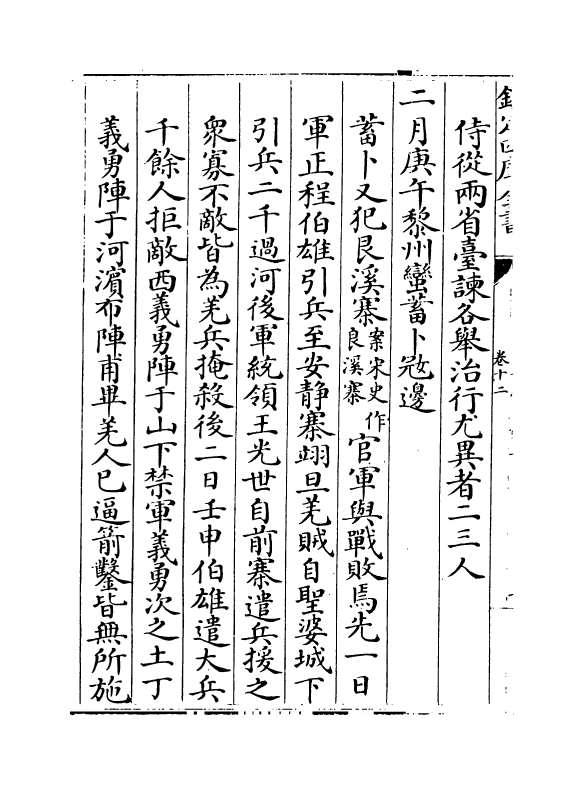 欽定四庫全書
卷十二
侍從兩省臺諫各舉治行尤異者二三人
二月庚午黎州蠻蓄卜冦邊
蓄卜又犯艮溪寨案宋史作良溪寨官軍與戰敗焉先一日
軍正程伯雄引兵至安靜寨翊旦羌賊自聖婆城下
引兵二千過河後軍統領王光世自前寨遣兵援之
衆寡不敵皆為羌兵掩殺後二日壬申伯雄遣大兵
千餘人拒敵西義勇陣于山下禁軍義勇次之土丁
義勇陣于河濵布陣甫畢羌人已逼箭鑿皆無所施